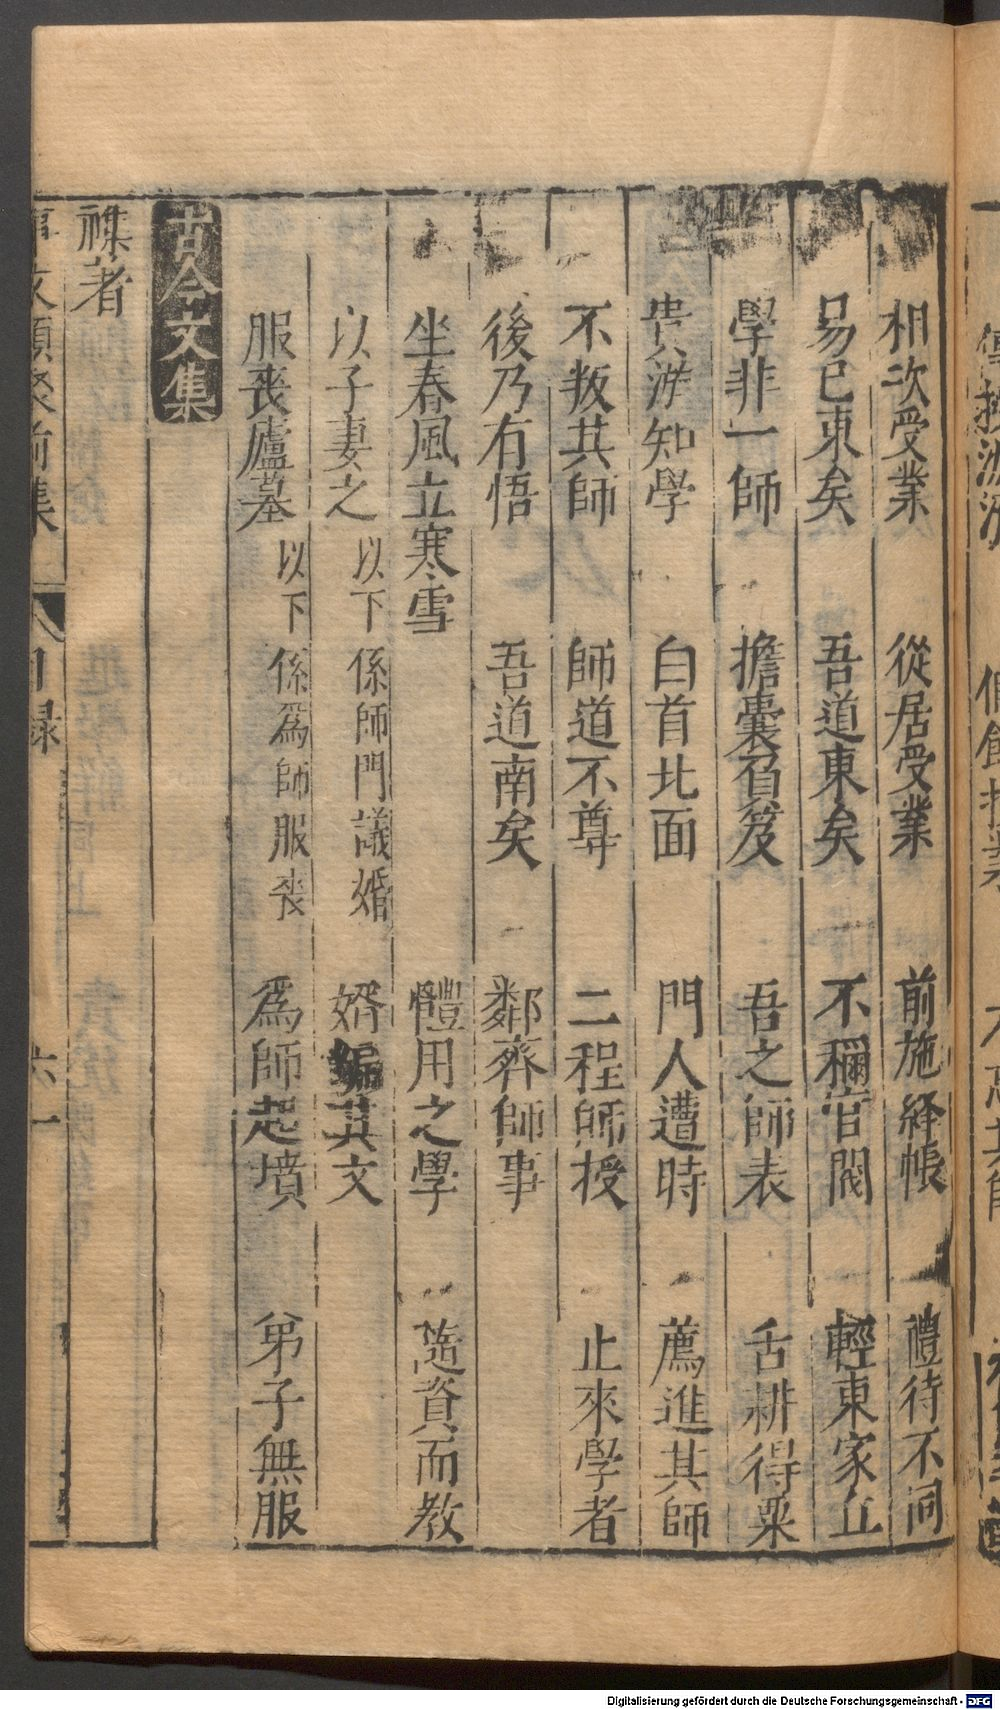 相次受業 從居受業 前施絳帳 禮待不同
易已東矣 吾道東矣 不穪官閥 輕東家丘
學非一師 擔囊負笈 吾之師表 舌耕得粟
貴游知學 白首北面 門人遭時 薦進其師
不叛其師 師道不尊 二程師授 止來學者
後乃有悟 吾道南矣 鄰齊師事
坐春風立寒雪 體用之學 隨資而教
以子妻之 以下係師門議婚 婿編其文
服喪廬墓 以下係爲師服喪 爲師起墳 弟子無服
古今文集
襍者
事文類聚前集 目録 六一
Digitalisierung gefördert durch die Deutsche Forschungsgemeinschaft - DFG